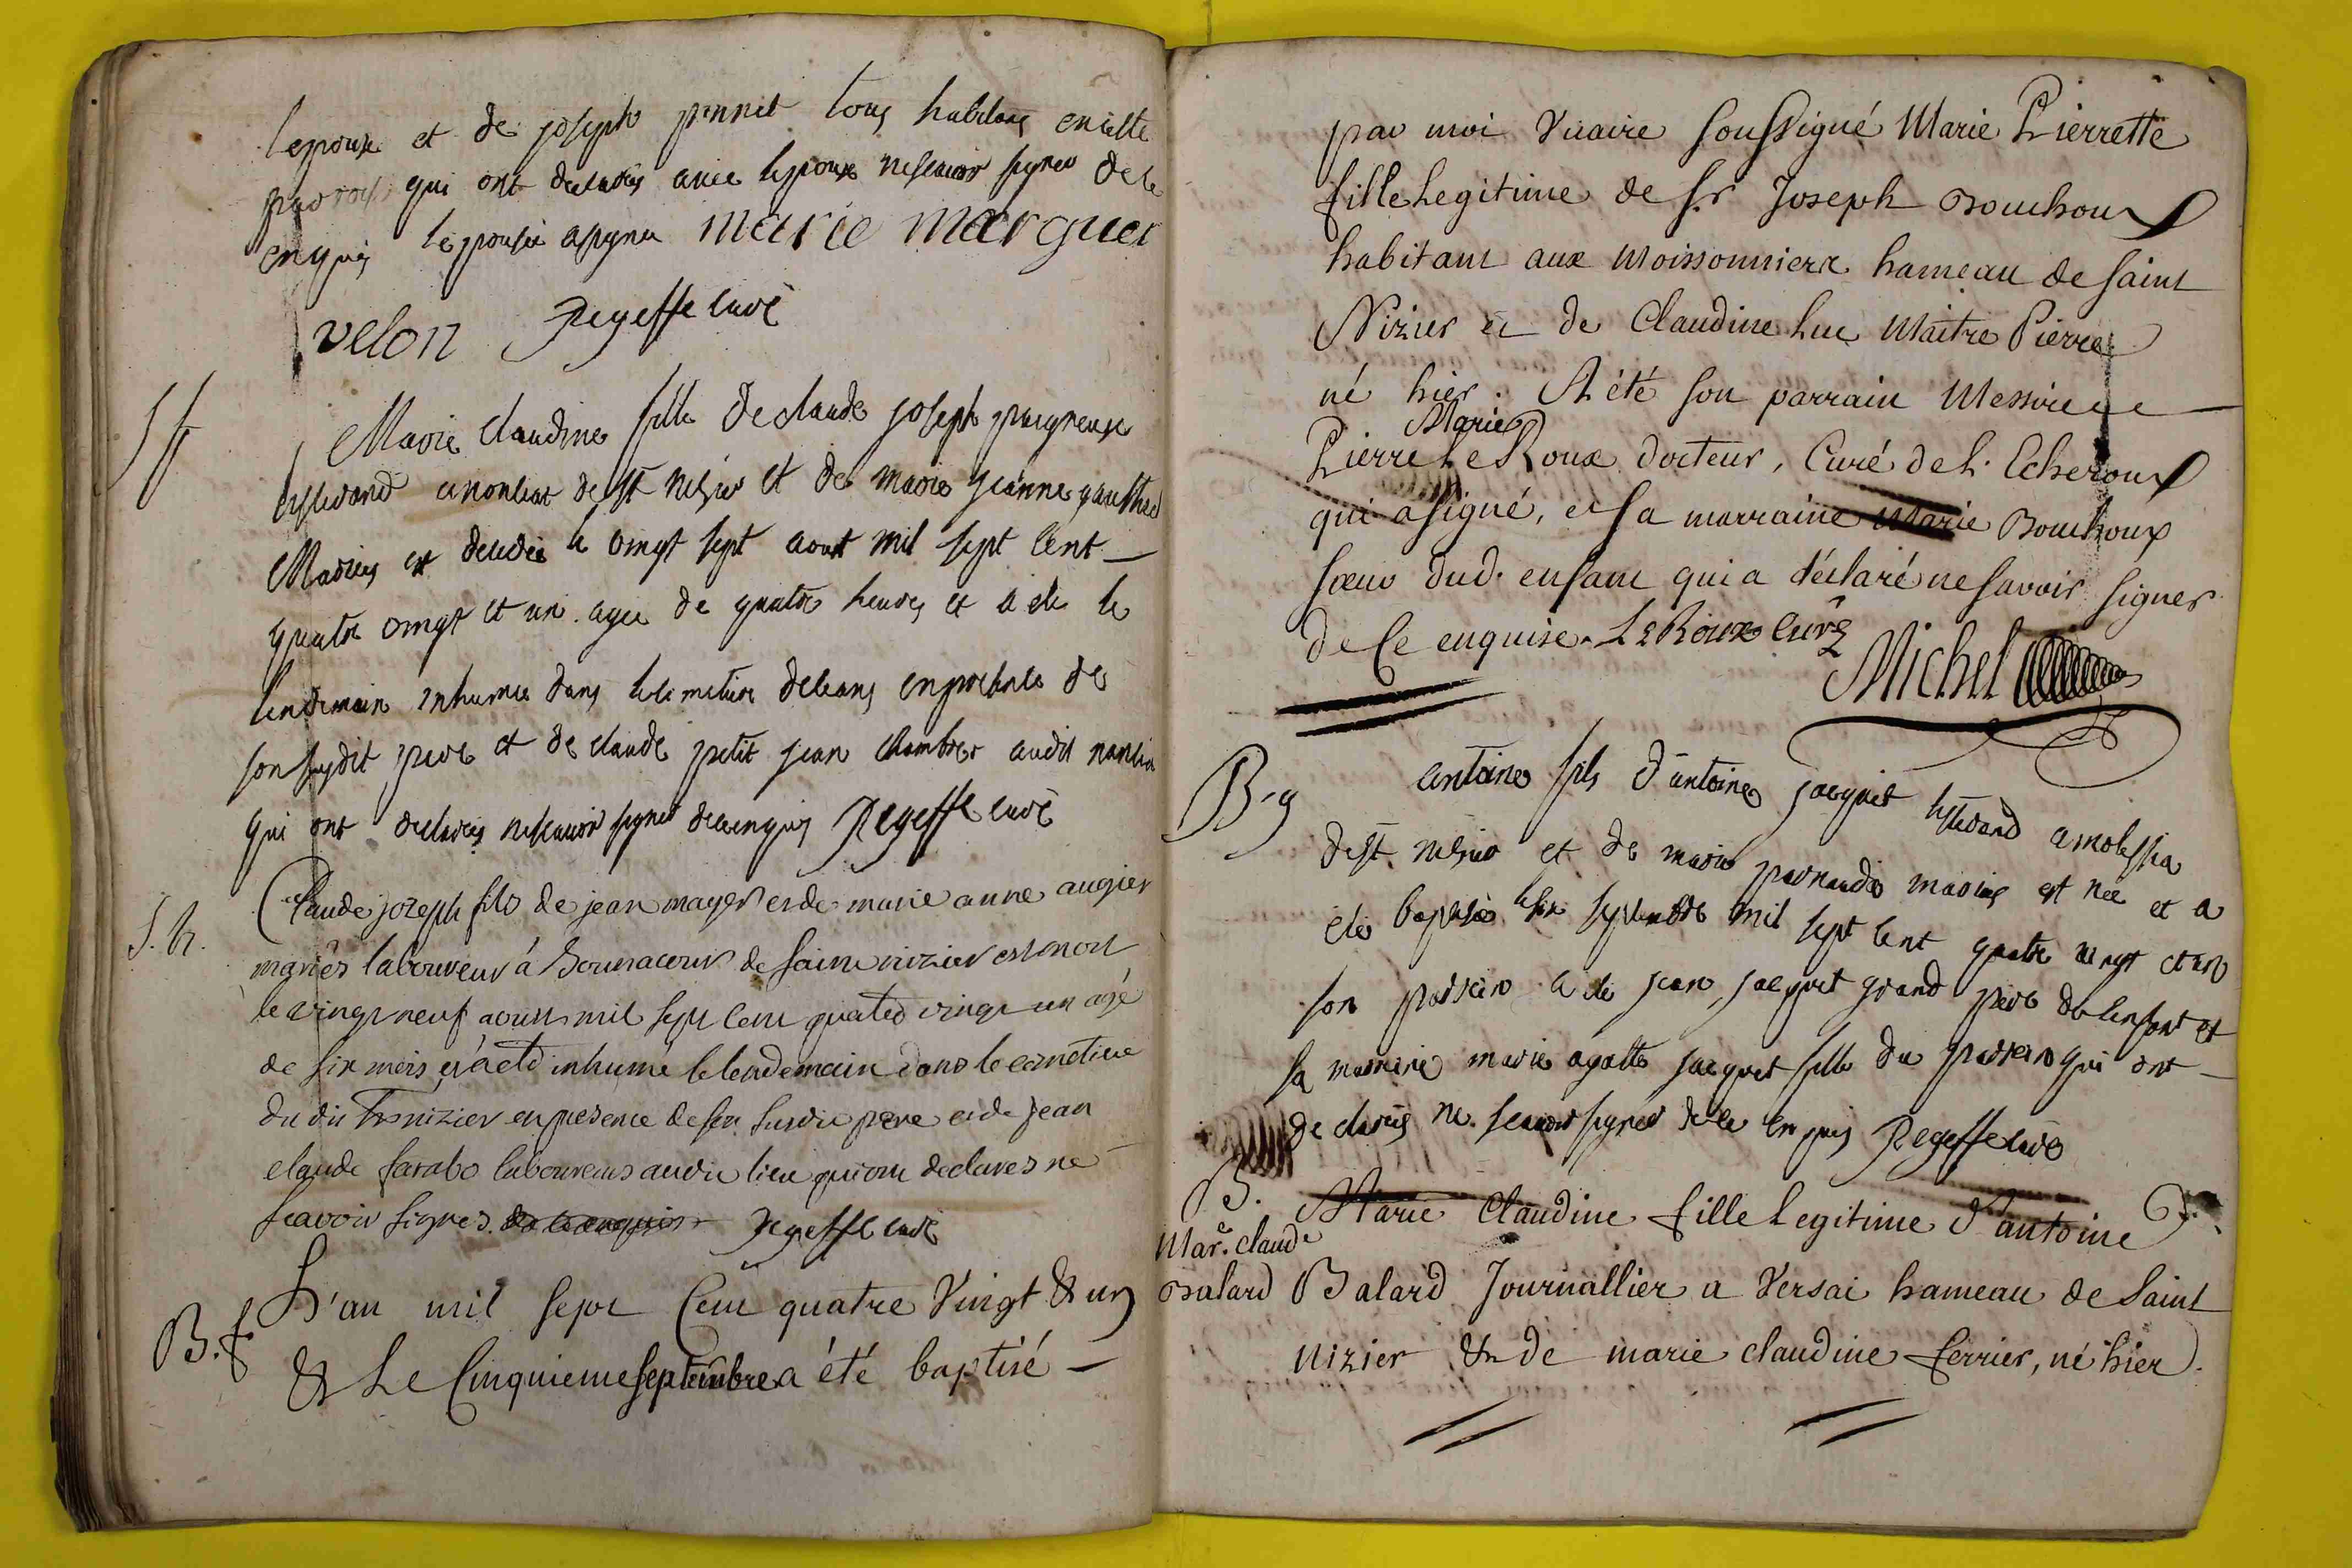 lepoux et de joseph pennet tous habitans en cette
qui ont declarés avec lepoux ne scavoir signer de ce
enquis lepouse a signee marie marguer
velon Regeffe curé
Marie Claudine fille de claude joseph
de st nesier et de marie jeanne
Mariés est decedée le vingt sept aout mil sept cent
quatre vingt et un agee de quatre heures et a ete le
lendemain inhumee dans le cimetiere deleans en presence de
son susdit pere et de claude petit jean audit
qui ont declarés ne scavoir signer de ce enquis Regeffe curé
S. h.
Claude jozeph fils de jean mayer et de marie anne augier
mariés laboureur á de saint nizier est mort
le vingt neuf aoust mil sept cent quatre vingt un agé
de six mois et a eté inhumé le lendemain dans le cimetiere
du dit St nizier en presence de son susdit pere et de jean
claude farabo laboureurs au dit lieu qui ont declares ne
scavoir signer de ce enquis Regeffe curé
B. f
L'an mil sept Cent quatre Vingt & un
& Le Cinquieme septembre a été baptisé
par moi Vicaire soussigné Marie Pierrette
fille Legitime de Sr Joseph Bouchoux
habitant aux Moissonniere hameau de saint
Nizier et de Claudine Luc Maitre Pierre
né hier. A été son parrain Messire
Marie
Pierre Le Roux docteur, Curé de L. Echeroux
qui a signé, et sa marraine Marie Bouchoux
sœur dud. enfant qui a déclaré ne savoir signer
de Ce enquise. Le Roux Curé
Michel
B. g
antoine fils d'antoine jacquet
de st. nesier et de marie mariés est nee et a
ete baptisé le six septembre mil sept cent quatre vingt et un
son parrein a ete jean jacquet grand pere de lenfant et
sa marreine marie agatte jacquet fille du parrein qui ont
declarés ne scavoir signer de ce enquis Regeffe curé
B.
Mar.e claude
Balard
Marie Claudine fille Legitime d'antoine
Balard Journallier a Versai hameau de Saint
Nizier & de marie claudine ferrier, né hier.